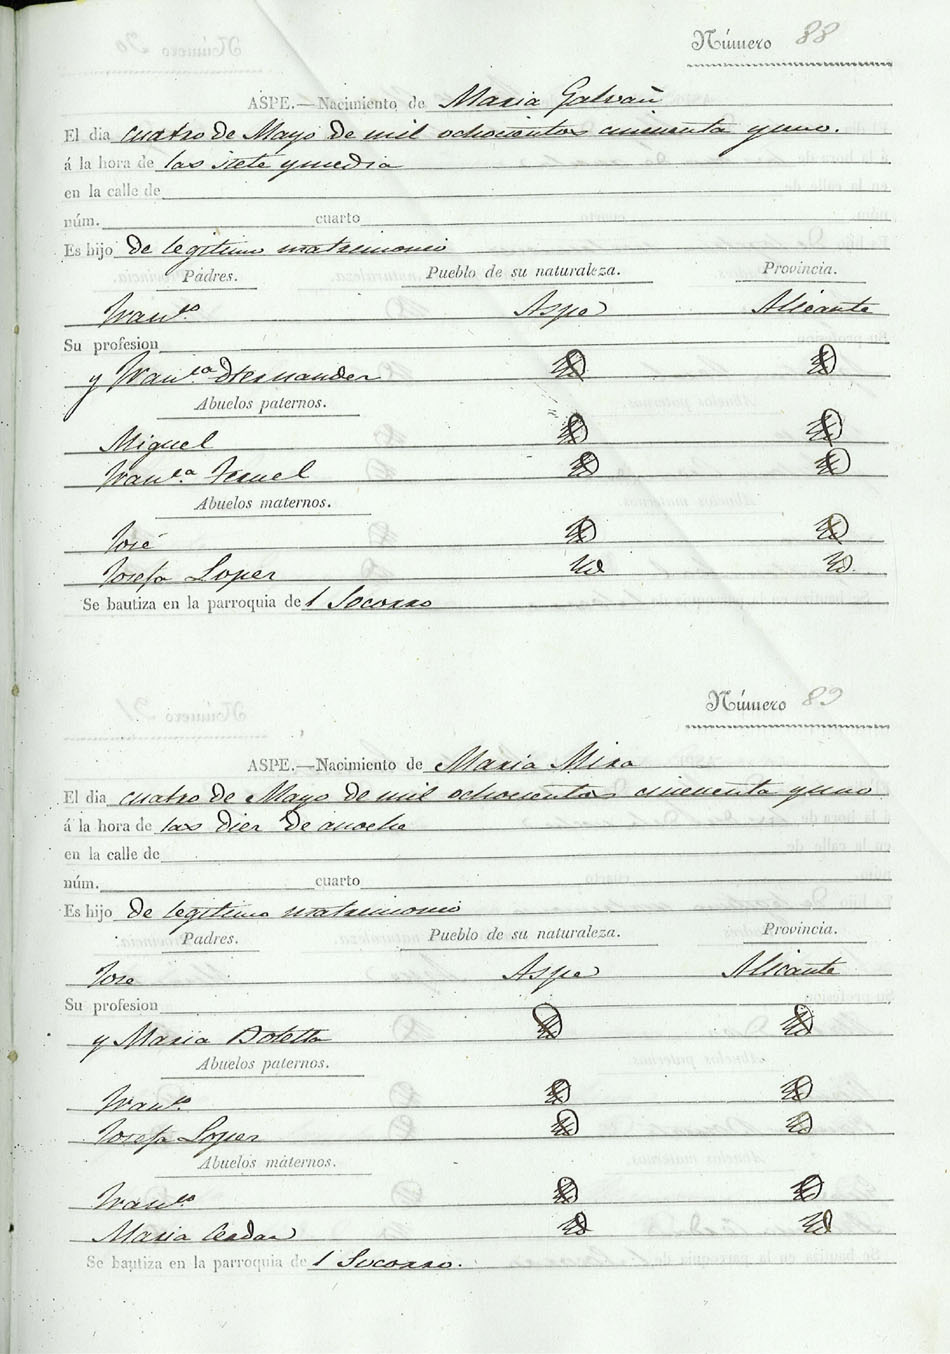 Número 88
ASPE.—Nacimiento de Maria Galvañ
El dia cuatro de Mayo de mil ochocientos cincuenta y uno.
á la hora de las siete y media
en la calle de
núm. cuarto
Es hijo de legitimo matrimonio
Padres. Pueblo de su naturaleza. Provincia.
Fran.co Aspe Alicante
Su profesion
y Fran.ca Hernandez Yd Yd
Abuelos paternos.
Miguel Yd Yd
Fran.ca Teruel Yd Yd
Abuelos maternos.
José Yd Yd
Josefa Lopez Yd Yd
Se bautiza en la parroquia del Socorro
Número 89
ASPE.—Nacimiento de Maria Mira
El dia cuatro de Mayo de mil ochocientos cincuenta y uno
á la hora de las diez de anoche
en la calle de
núm. cuarto
Es hijo de legitimo matrimonio
Padres. Pueblo de su naturaleza. Provincia.
Jose Aspe Alicante
Su profesion
y Maria Botella Yd Yd
Abuelos paternos.
Fran.co Yd Yd
Josefa Lopez Yd Yd
Abuelos maternos.
Fran.co Yd Yd
Maria Cerdan Yd Yd
Se bautiza en la parroquia del Socorro.